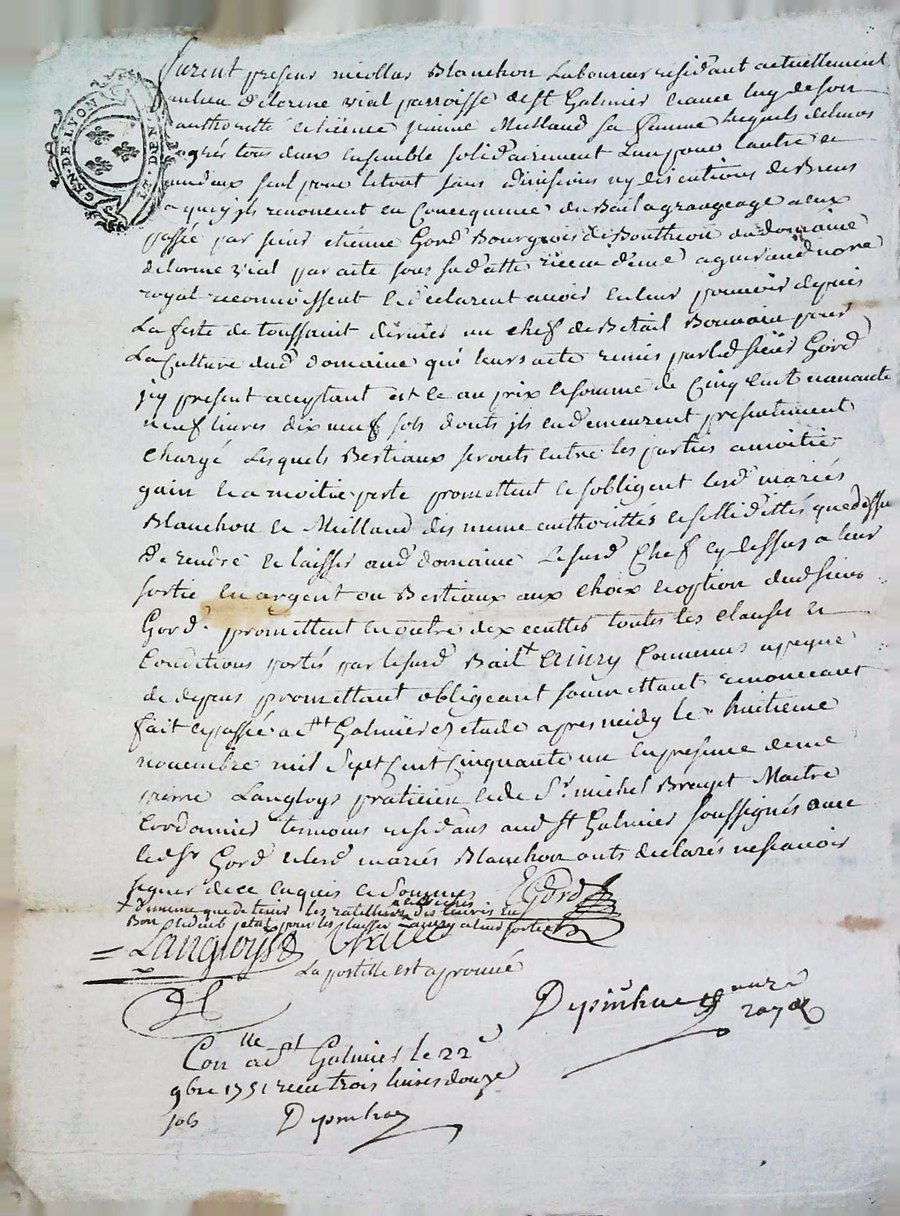 GEN. DE LYON
furent presens nicollas Blanchon Laboureur residant actuellement
aulieu d'elorme vial parroisse de St Galmier et avec luy de son
authorité et licence jeanne Meilland sa femme lesquels de leurs
grés tous deux ensemble solidairement L'un pour l'autre et
un d'eux seul pour le tout sans divisions ny discutions de Biens
a quoy jls renoncent en Consequance du Bail a grangeage a eux
passée par sieur etienne Gord Bourgeois de Bouthéon du domaine
delorme vial par acte sous sa datte receu d'eme notre
royal reconnoissent et declarent avoir en leur pouvoir depuis
La feste de toussaint dernier un chef de Betail Bouvain pour
La Culture dud domaine qui leurs a eté remis par led sieur Gord
jcy present acceptant est ce au prix et somme de Cinq cent nonante
neuf livres dix neuf sols donts jls en demeurent presentement
Chargé Lesquels Bestiaux serouts entre les parties a moitié
gain et a moitié perte promettent et sobligent lesd mariés
Blanchon et Meilland des meme authorittés et sollidittés que dessus
de rendre et laisser aud domaine Le susd Chef cy dessus a leur
sortie en argent ou Bestiaux aux choix et option dud sieur
Gord promettent en outre dexecuttés toutes les clauses et
Conditions portés par le susd Bail+ Convenus a peyne
de depens promettant obligeant soumettant renoncant
fait et passé a St Galmier et etude apres midy le huitieme
novembre mil Sept Cent Cinquante un en presence de me
pierre Langloys praticien et de Sr michel Maitre
Cordonnier temoins residans aud St Galmier soussignés avec
led Sr Gord et lesd mariés Blanchon onts declarés ne scavoir
signer de ce enquis et Sommés EGord
+ de meme que de tenir les ratelliers
Bon et deub jetat pour les laisser a leur sortie
Langloys
La postille est aprouvée
Depinhac nore
royal
Conlle a St Galmier le 22e
9bre 1751 receu trois livres douze
sols Depinhac